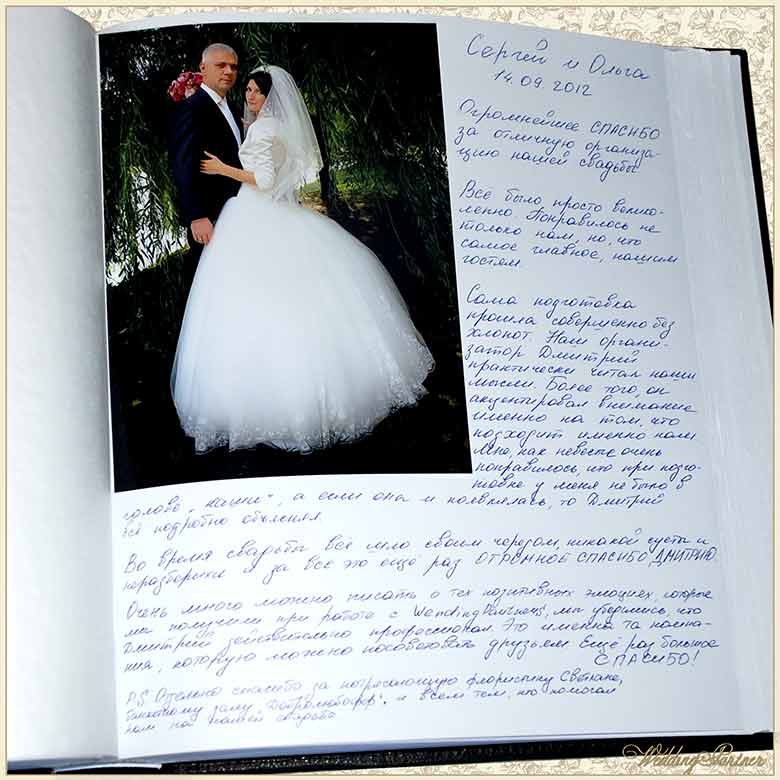 Сергей и Ольга
14.09.2012
Огромнейшее СПАСИБО
за отличную организа-
цию нашей свадьбы
Всё было просто велико-
лепно Понравилось не
только нам, но, что
самое главное, нашим
гостям.
Сама подготовка
прошла совершенно без
хлопот. Наш органи-
затор Дмитрий
практически читал наши
мысли. Более того, он
акцентировал внимание
именно на том, что
подходит именно нам
Мне, как невесте очень
понравилось, что при подго-
товке у меня не было в
голове „каши", а если она и появлялась, то Дмитрий
всё подробно объяснял
Во время свадьбы всё шло своим чередом, никакой суеты и
неразберихи и за всё это ещё раз ОГРОМНОЕ СПАСИБО, ДМИТРИЮ.
Очень много можно писать о тех позитивных эмоциях, которые
мы получили при работе с WendingPartners, мы убедились, что
Дмитрий действительно профессионал. Это именно та компа-
ния, которую можно посоветовать друзьям Ещё раз большое
СПАСИБО!
P.S Отдельно спасибо за потрясающую флористику Светлане,
банкетному залу и всем тем, кто помогал
нам на нашей свадьбе
Wedding Partner